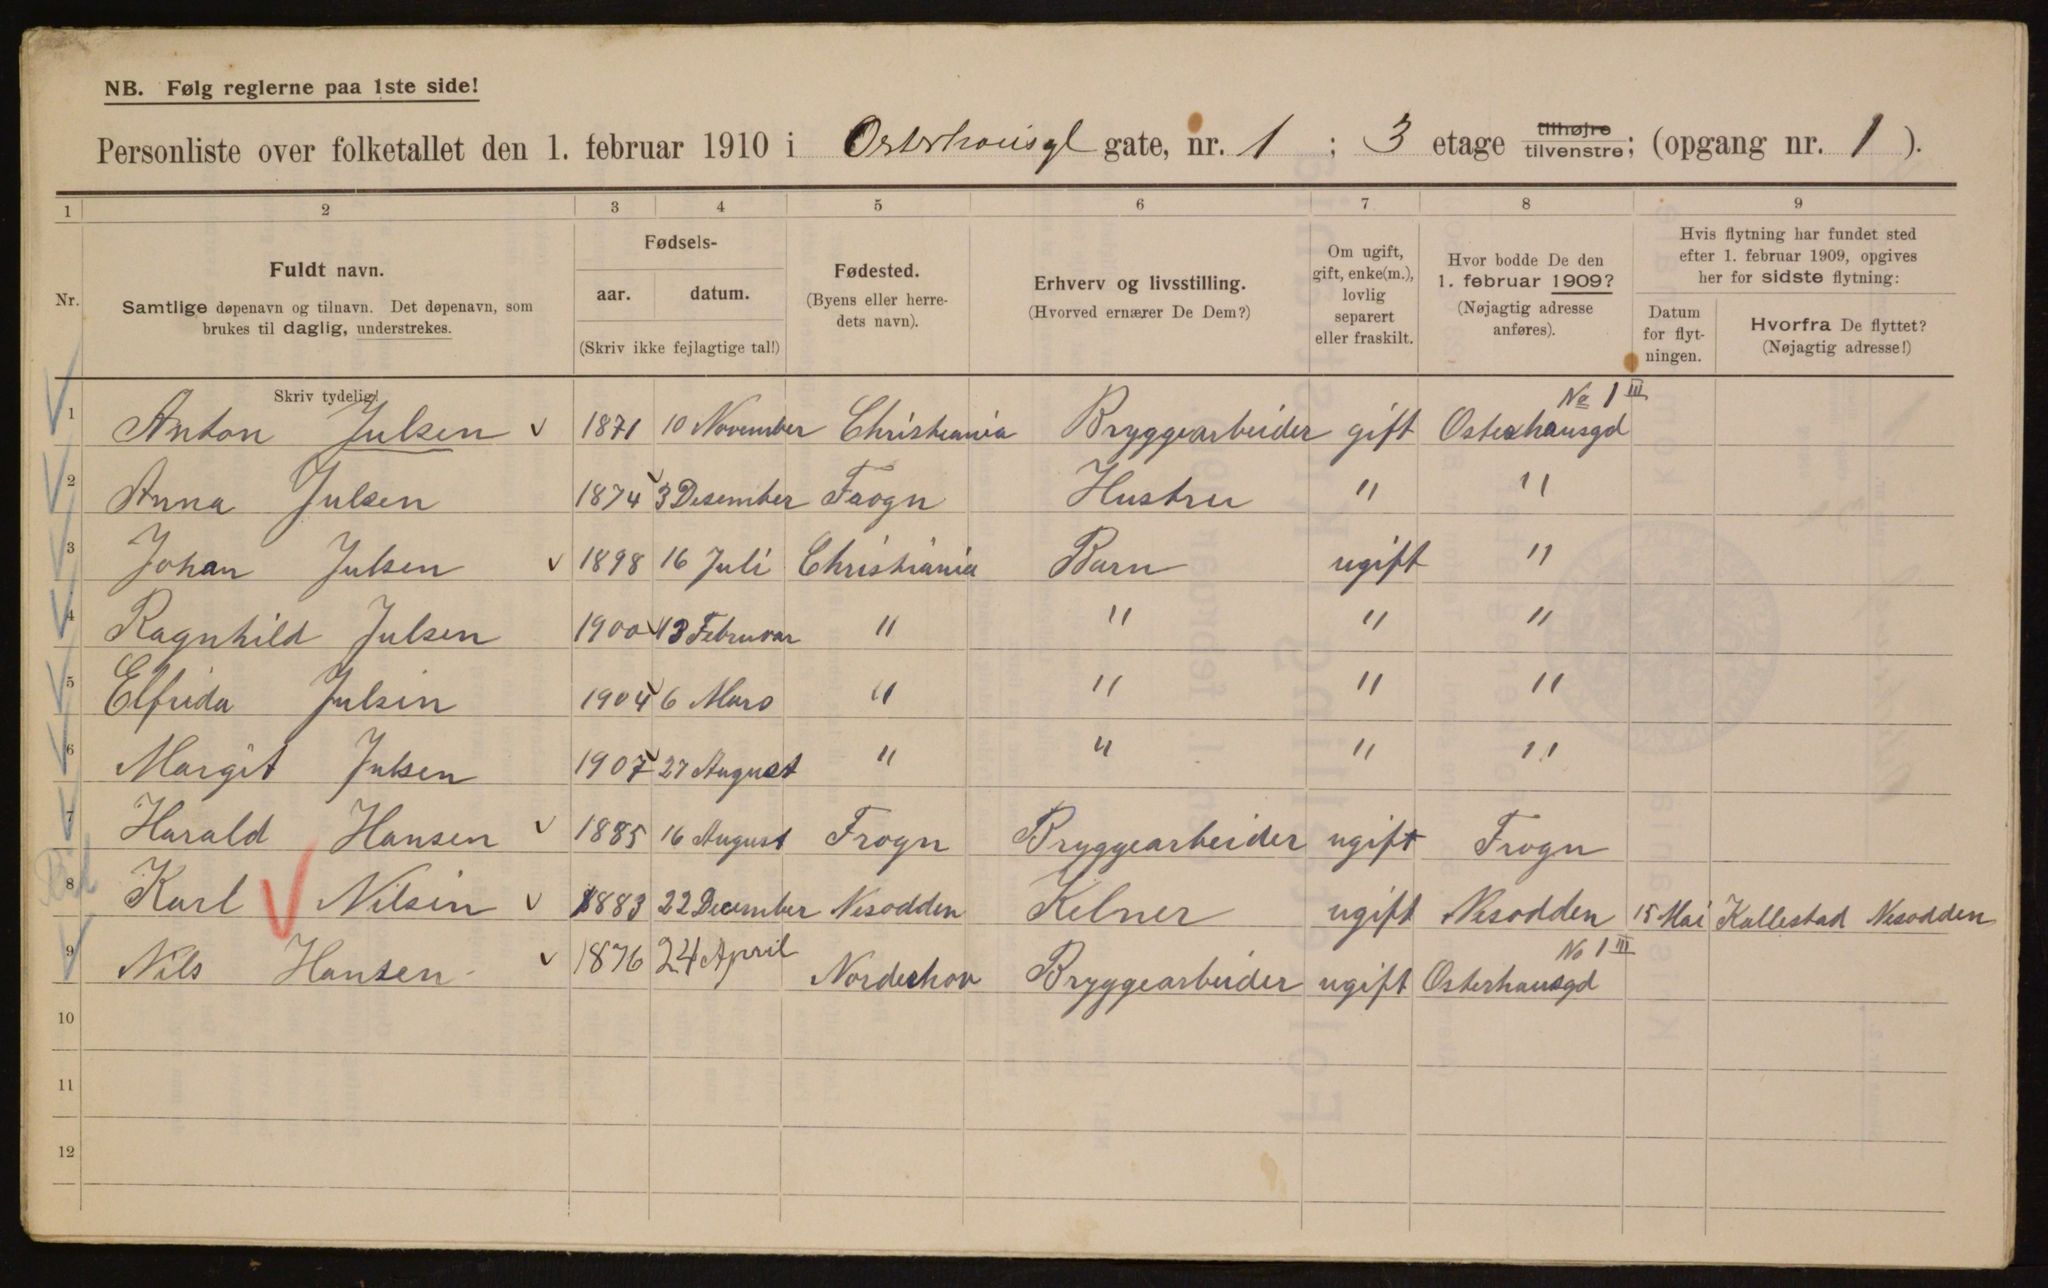 NB. Følg reglerne paa 1ste side!
Personliste over folketallet den 1. februar 1910 i Osterhausgt gate, nr. 1 ; 3 etage tilhøjre tilvenstre; (opgang nr. 1 ).
1 2 3 4 5 6 7 8 9
Nr.
Fuldt navn.
Samtlige døpenavn og tilnavn. Det døpenavn, som
brukes til daglig, understrekes.
Fødsels-
aar. datum.
(Skriv ikke fejlagtige tal!)
Fødested.
(Byens eller herre-
dets navn).
Erhverv og livsstilling.
(Hvorved ernærer De Dem?)
Om ugift,
gift, enke(m.),
lovlig
separert
eller fraskilt.
Hvor bodde De den
1. februar 1909?
(Nøjagtig adresse
anføres).
Hvis flytning har fundet sted
efter 1. februar 1909, opgives
her for sidste flytning:
Datum
for flyt-
ningen.
Hvorfra De flyttet?
(Nøjagtig adresse!)
Skriv tydelig!
No 1 III
1 Anton Julsen v 1871 10 November Christiania Bryggearbeider gift Osterhausgd
2 Anna Julsen 1874 3 Desember Frogn Hustru " "
3 Johan Julsen v 1898 16 Juli Christiania Barn ugift "
4 Ragnhild Julsen 1900 13 Februar " " " "
5 Elfrida Julsin 1904 6 Mars " " " "
6 Margit Julsen 1907 27 August " " " "
7 Harald Hansen v 1885 16 August Frogn Bryggearbeider ugift Frogn
8 Karl Nilsin v 1883 22 December Nesodden Kelner ugift Nesodden 15 Mai Kallestad Nesodden
No 1 III
9 Nils Hansen v 1876 24 April Norderhov Bryggearbeider ugift Osterhausgd
10
11
12